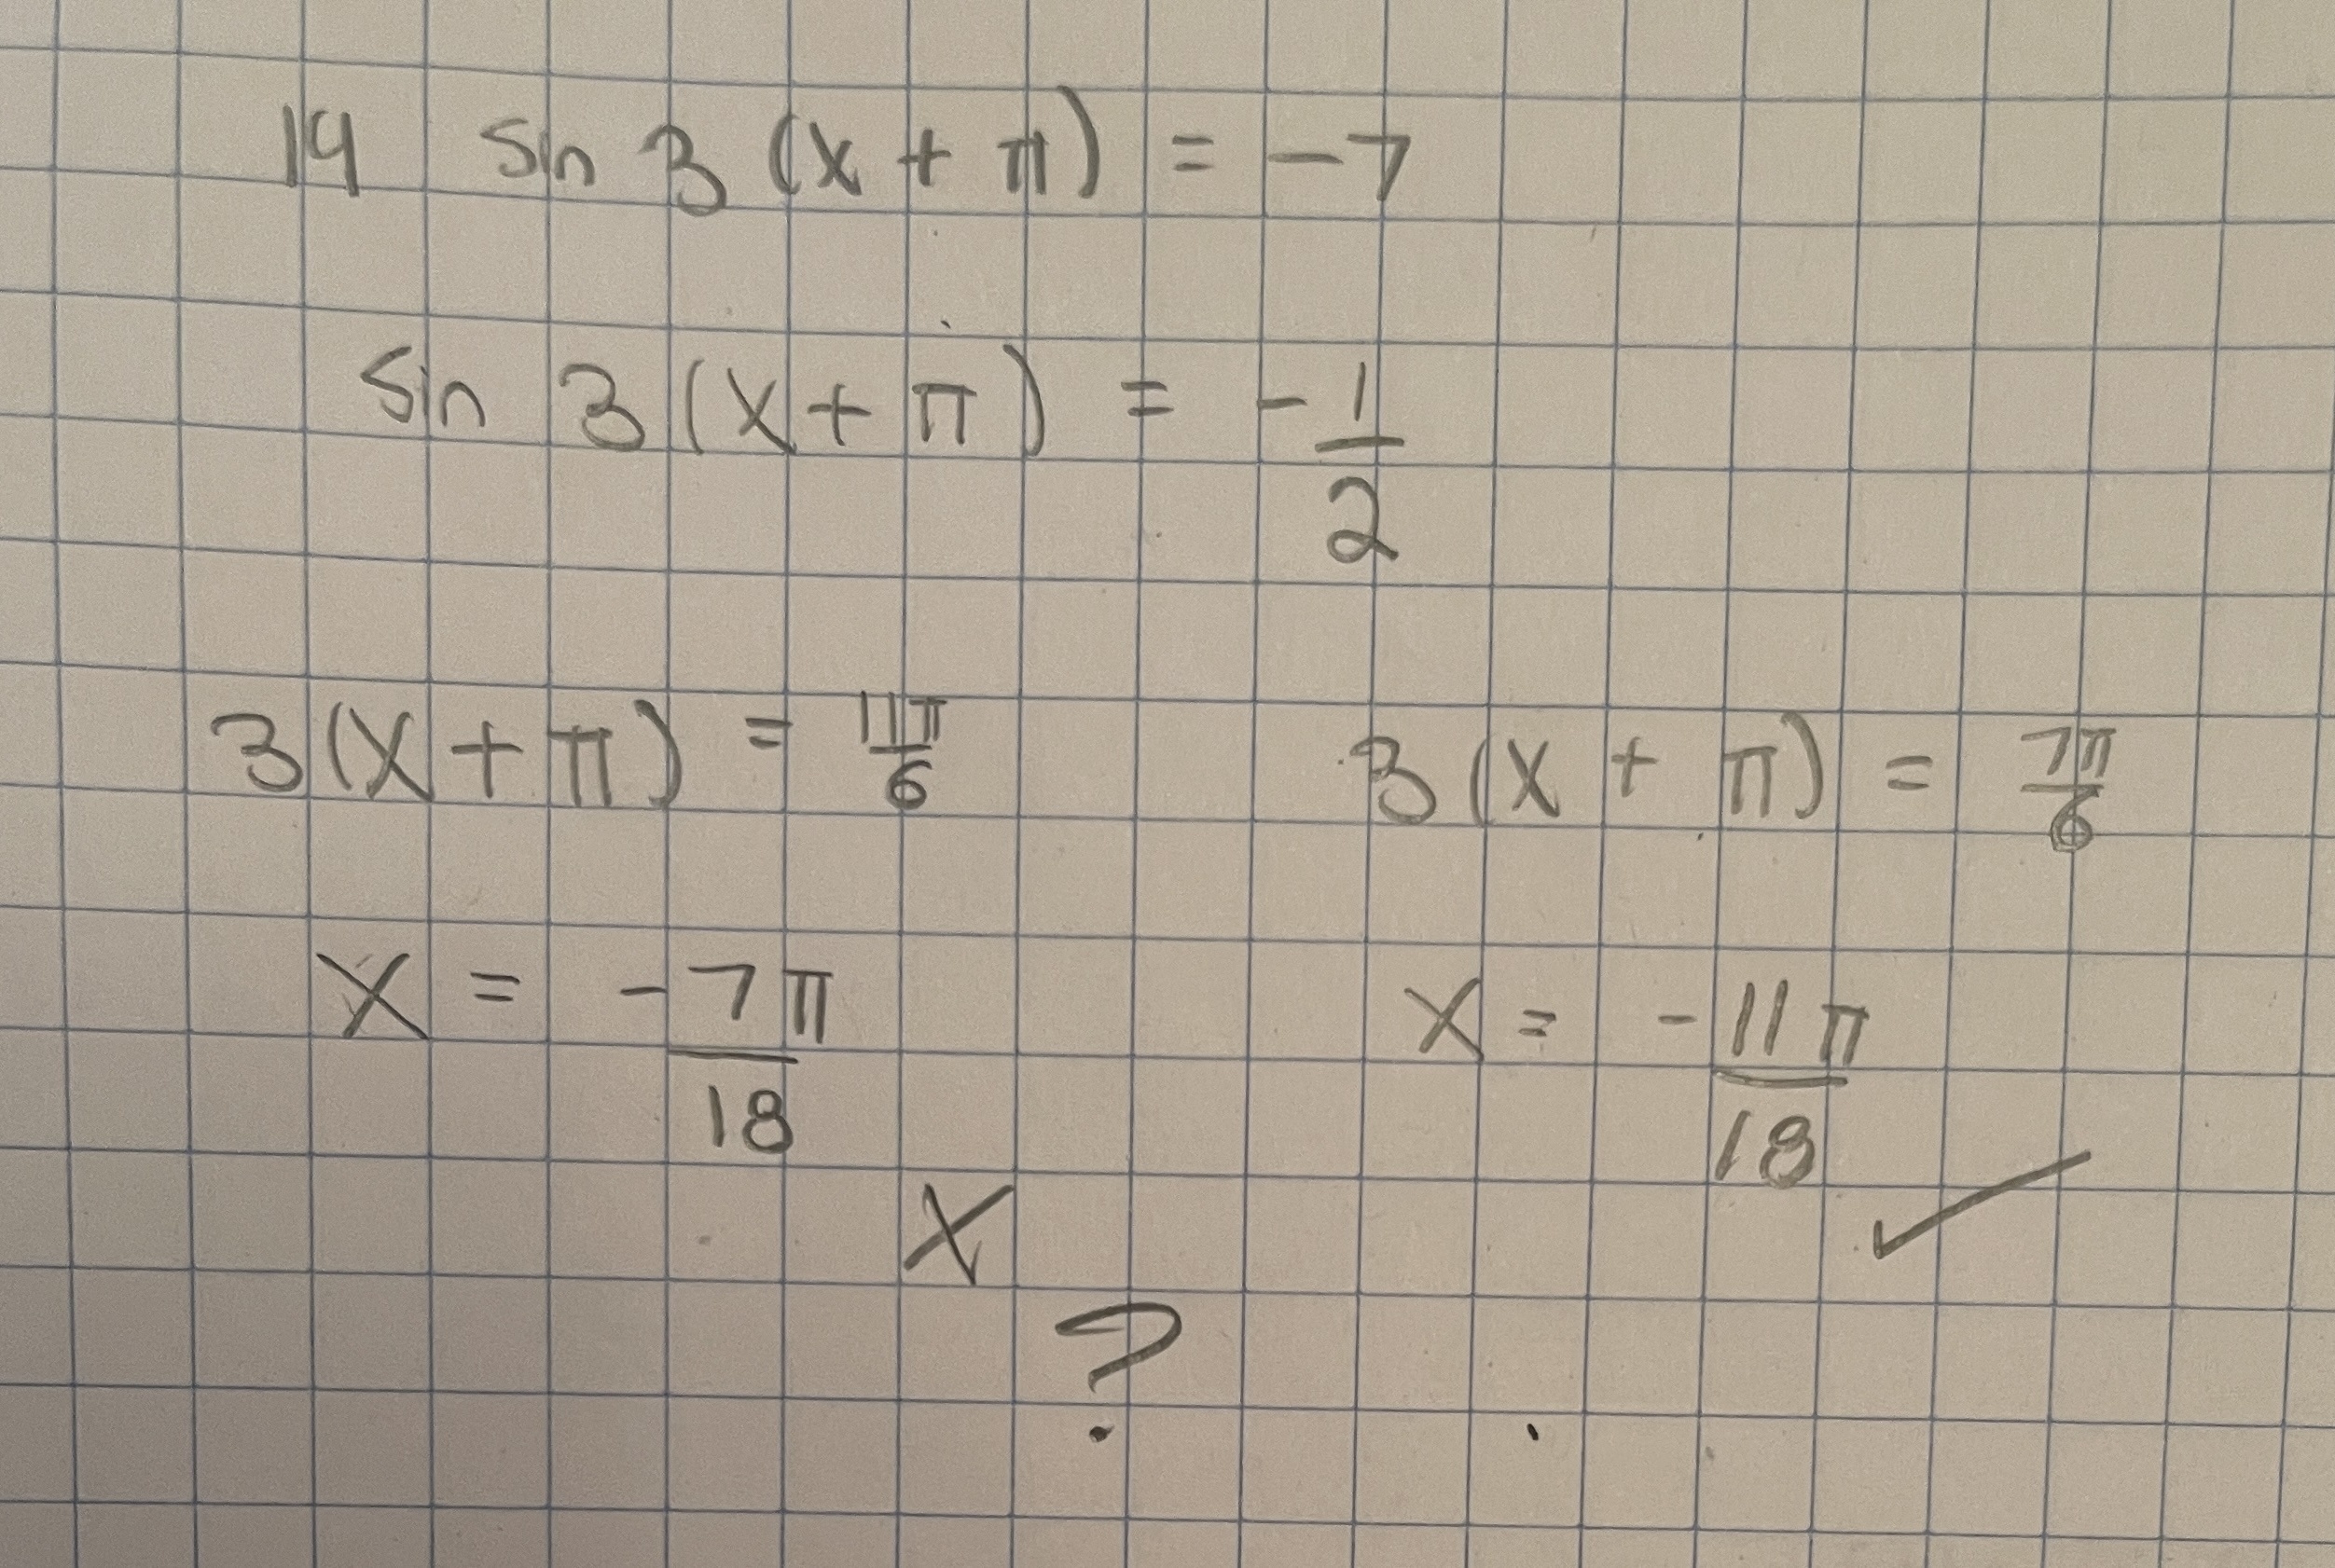 14 sin 3 (x + π) = -7
sin 3 (x + π) = -1/2
3(x + π) = 11π/6    3(x + π) = 7π/6
x = -7π/18    x = -11π/18
X    ✓
?